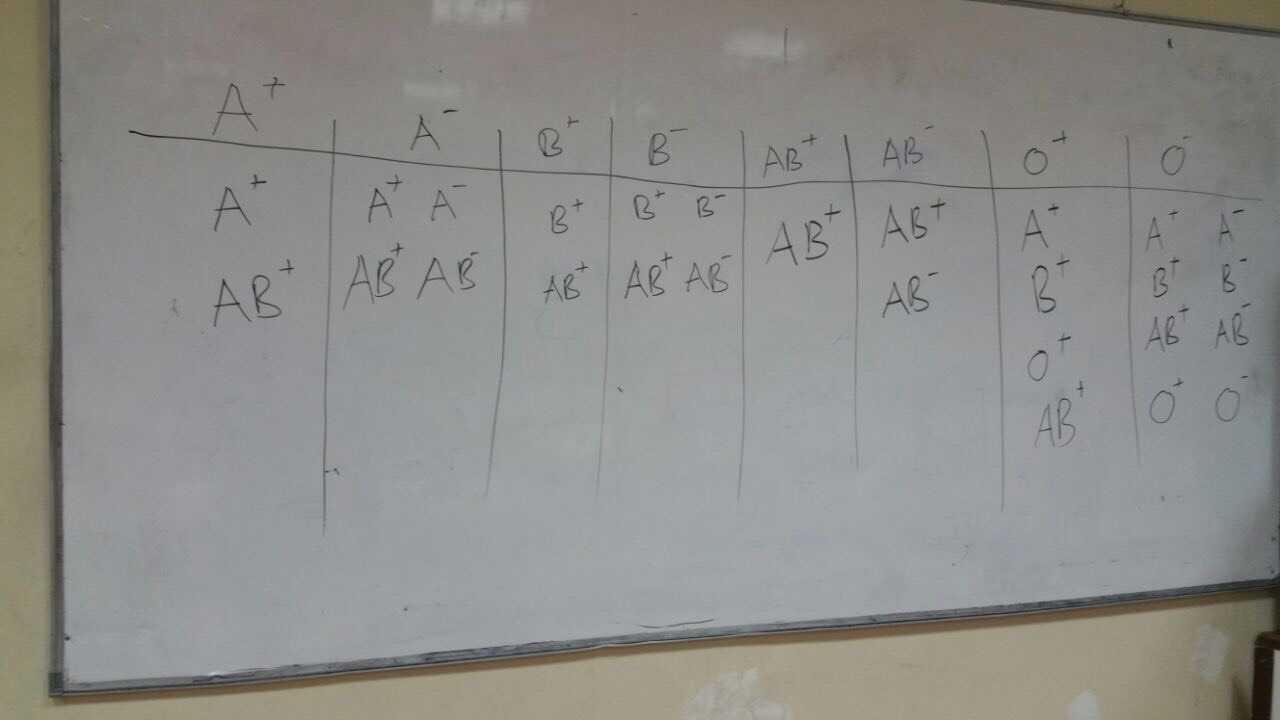 A⁺ A⁻ B⁺ B⁻ AB⁺ AB⁻ O⁺ O⁻
A⁺ A⁺ A⁻ B⁺ B⁺ B⁻ AB⁺ AB⁺ A⁺ A⁺ A⁻
AB⁺ AB⁺ AB⁻ AB⁺ AB⁺ AB⁻ AB⁻ B⁺ B⁺ B⁻
O⁺ AB⁺ AB⁻
AB⁺ O⁺ O⁻